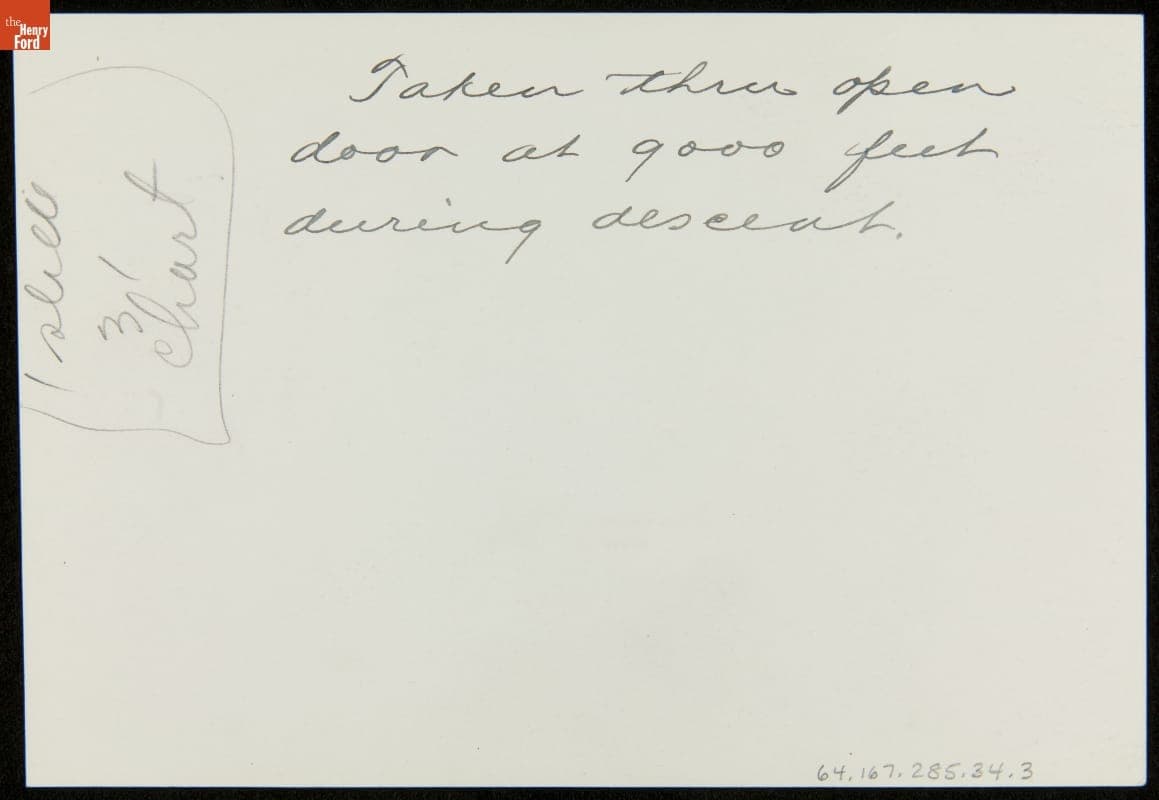 the
Henry
Ford
Taken thru open
door at 9000 feet
during descent.
3'
chart
64.167.285.34.3